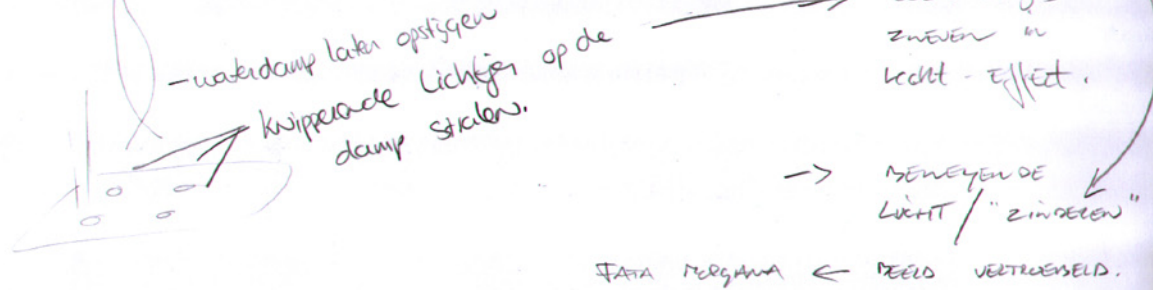 - waterdamp laten opstijgen
knipperende lichtjes op de
damp stralen.
zweven in
lucht - Effect.
-> BEWEGENDE
LUCHT / "ZINDEREN"
FATA MORGANA <- BEELD VERTROEBELD.